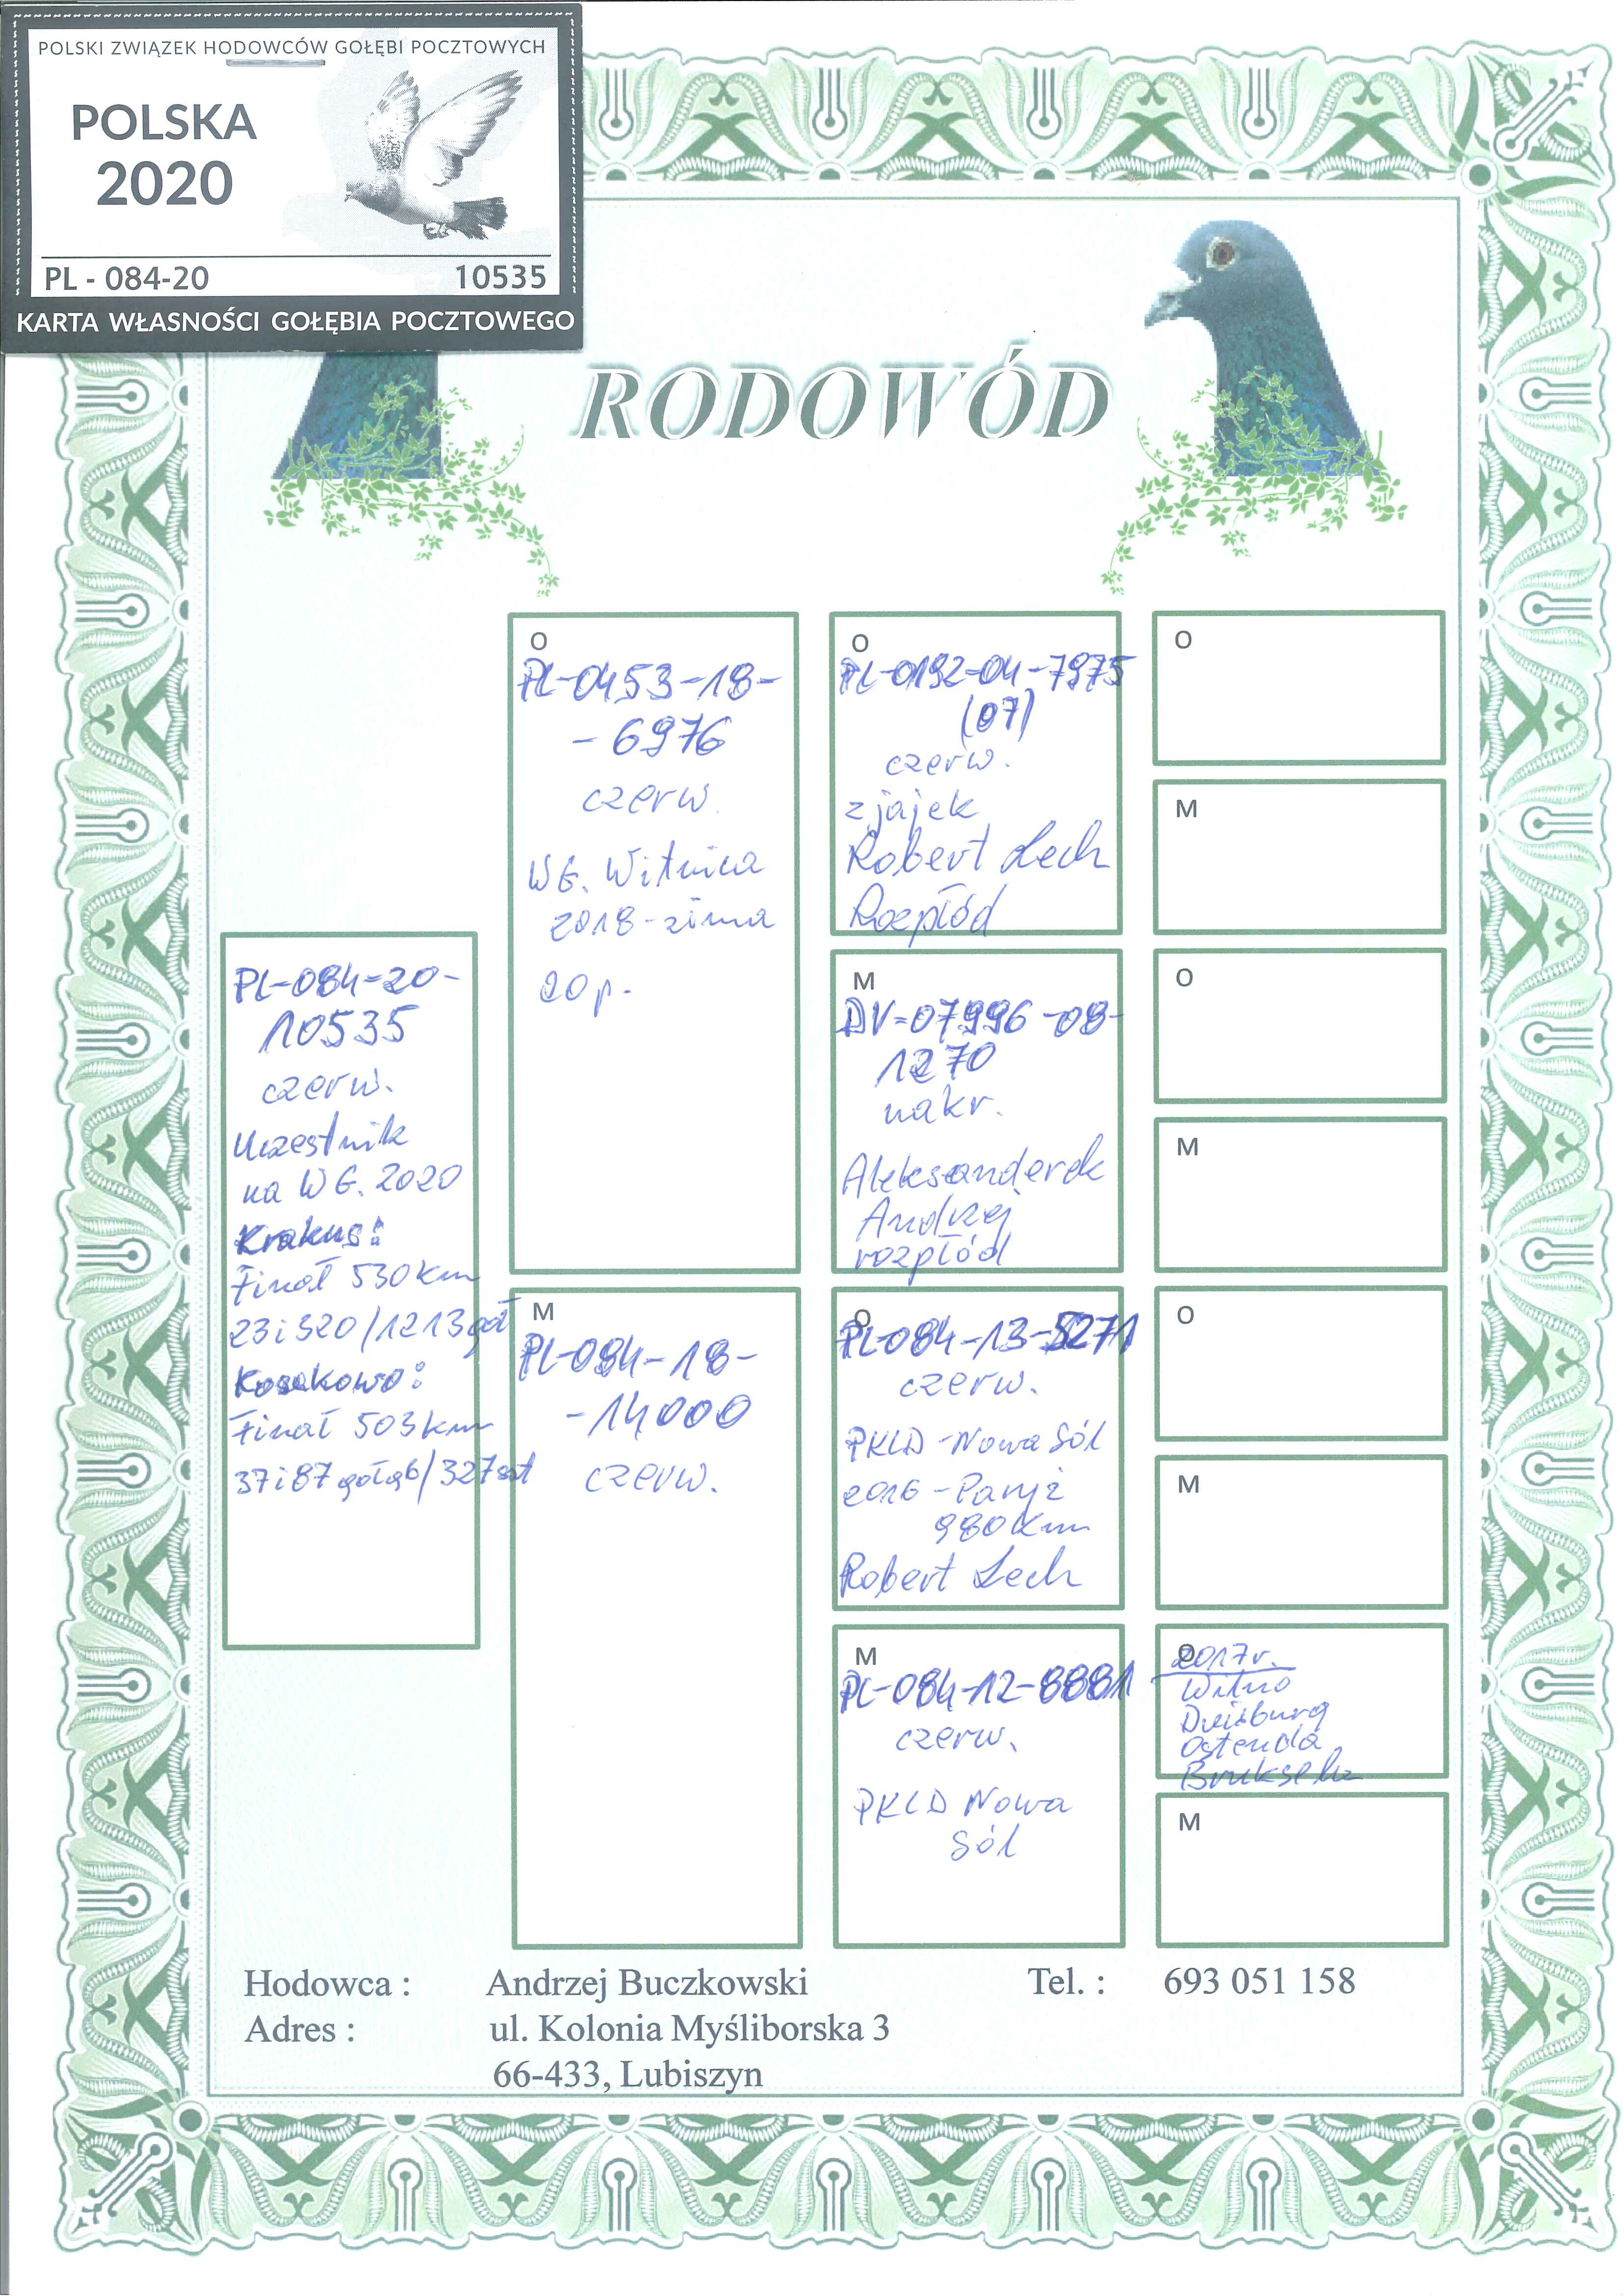 POLSKI ZWIĄZEK HODOWCÓW GOŁĘBI POCZTOWYCH
POLSKA
2020
PL - 084-20 10535
KARTA WŁASNOŚCI GOŁĘBIA POCZTOWEGO
RODOWÓD
PL-084-20-
10535
czerw.
Uczestnik
na WG. 2020
Krakus:
Finał 530km
23i320/1213goł
Kosakowo:
Finał 503km
37i87gołąb/327szt
O
PL-0453-18-
-6976
czerw.
WG. Witnica
2018-zima
20p.
M
PL-084-18-
-14000
czerw.
O
PL-0192-04-7975
(07)
czerw.
z jajek
Robert Lech
Rozpłód
M
DV-07996-08-
1270
nakr.
Aleksanderek
Andrzej
rozpłód
O
PL-084-13-5271
czerw.
PKLD-Nowa Sól
2016-Paryż
980Km
Robert Lech
M
PL-084-12-8881
czerw.
PKLD Nowa
Sól
O
M
O
M
O
M
O
2017r.
Wilno
Duisburg
Ostenda
Bruksela
M
Hodowca : Andrzej Buczkowski Tel. : 693 051 158
Adres : ul. Kolonia Myśliborska 3
66-433, Lubiszyn